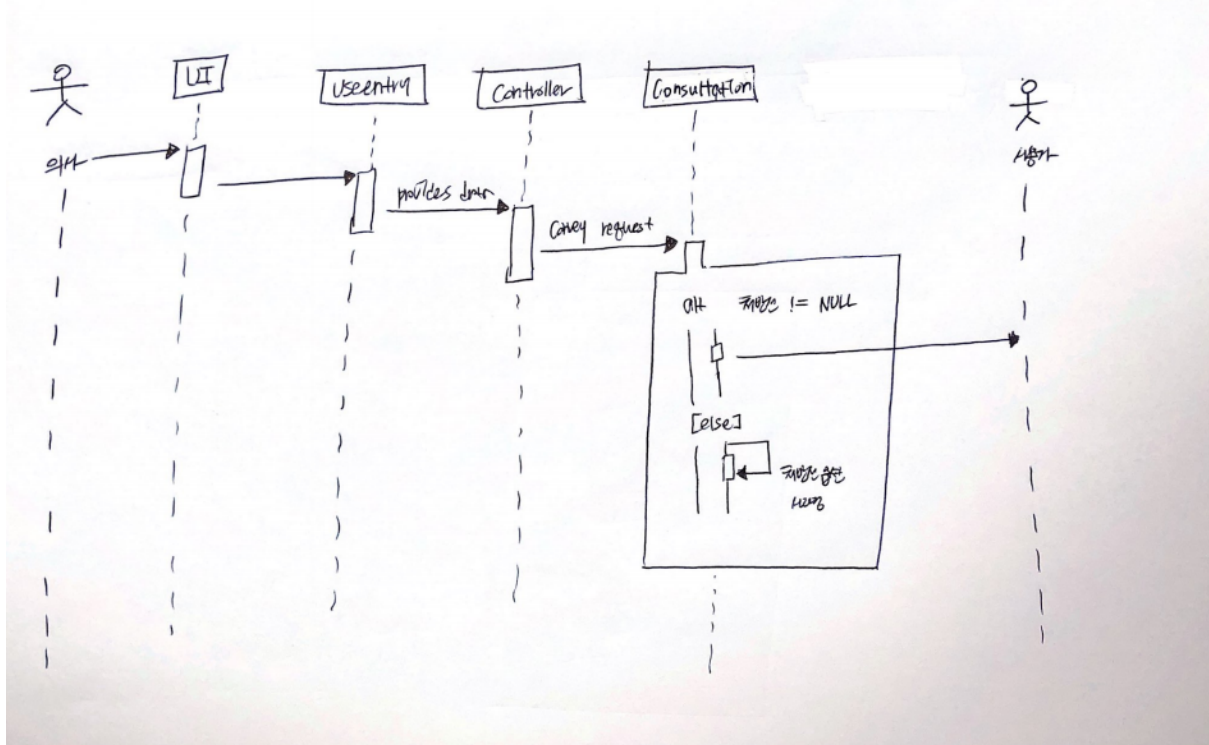 UI
Useentry
Controller
Consultation
의사
사용자
provides
Convey request
alt 처방전 != NULL
[else]
처방전